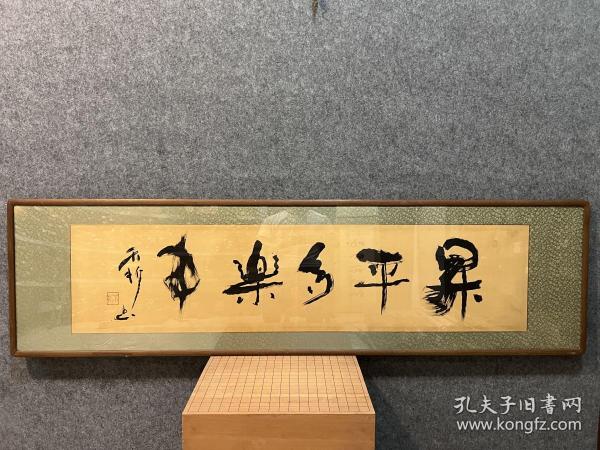 昇平多樂事
孔夫子旧書网
www.kongfz.com